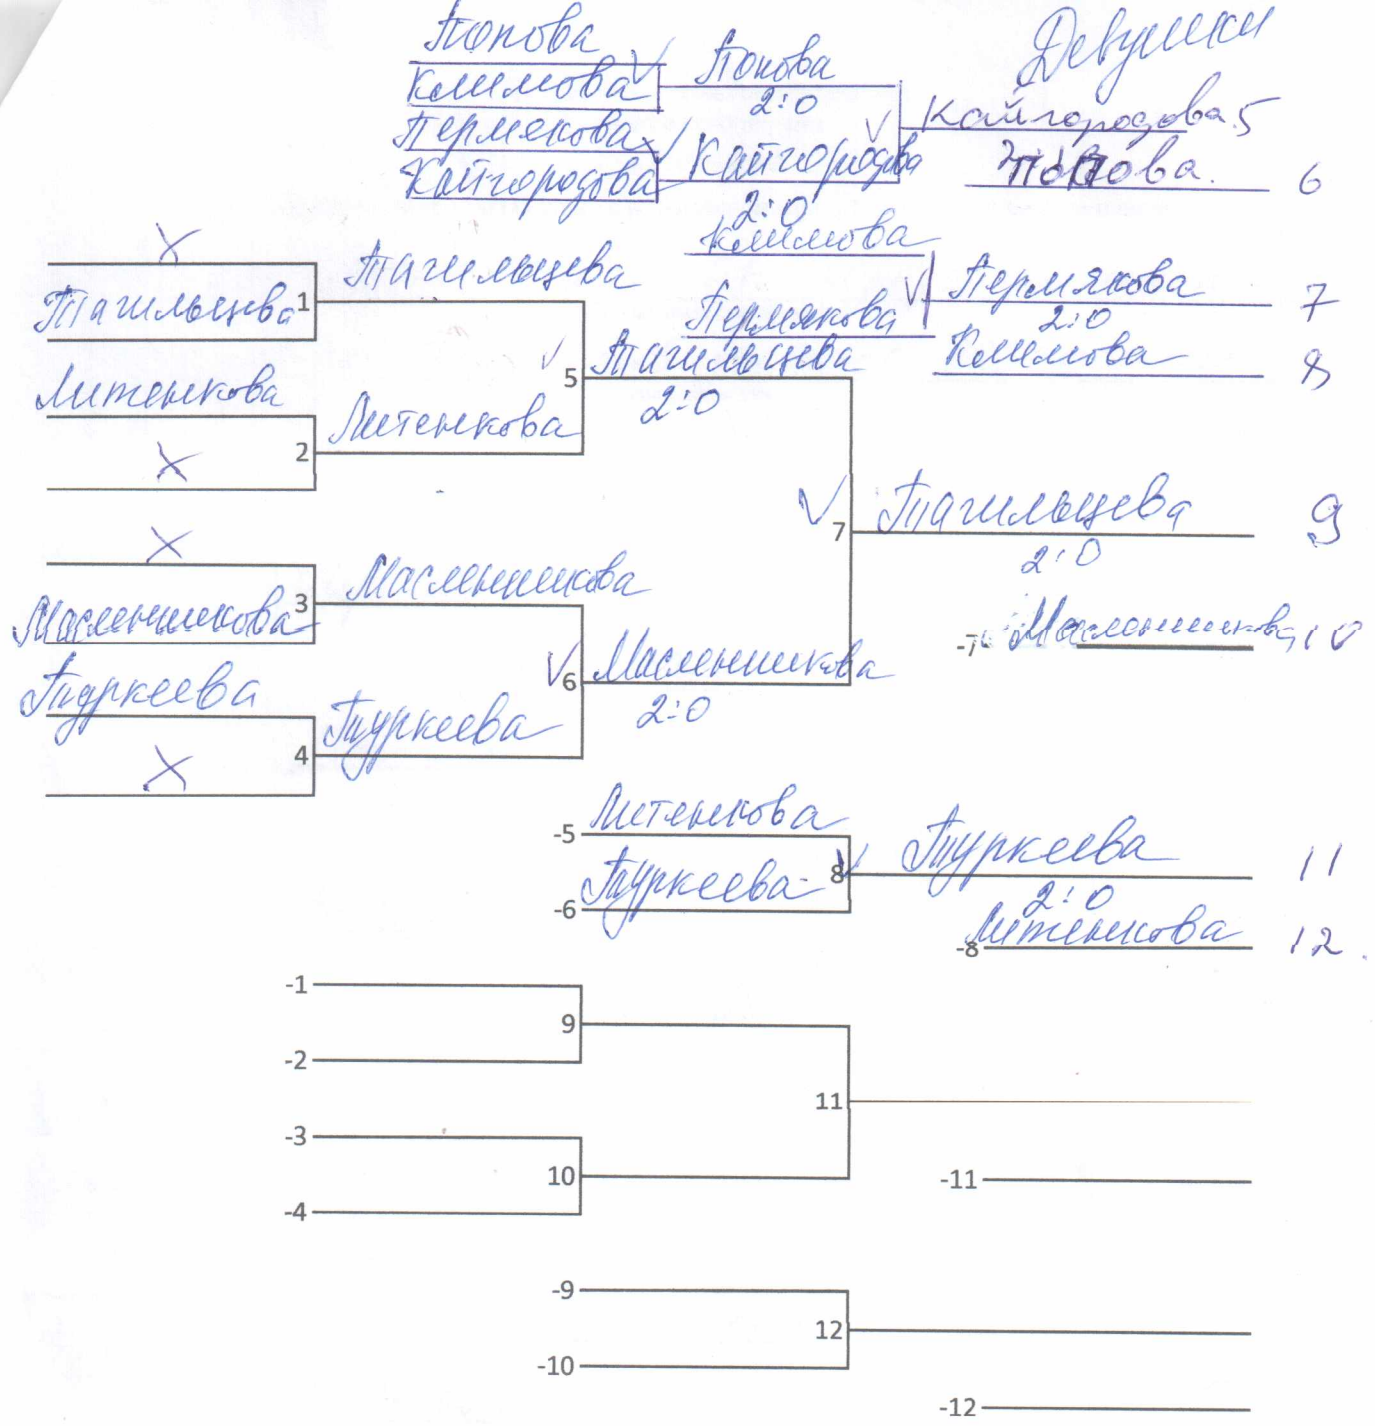 Девушки
Попова
Климова
Пермякова
Кайгородова
Попова
2:0
Кайгородова
2:0
Кайгородова 5
Попова 6
Климова
Пермякова
Пермякова 7
2:0
Климова 8
X
Тагильцева
1
Тагильцева
Литенкова
X
2
Литенкова
5
Тагильцева
2:0
X
Масленникова
3
Масленникова
Туркеева
X
4
Туркеева
6
Масленникова
2:0
7
Тагильцева 9
2:0
-7 Масленникова 10
-5 Литенкова
-6 Туркеева
8
Туркеева 11
2:0
-8 Литенкова 12.
-1
9
-2
11
-3
10
-4
-11
-9
12
-10
-12